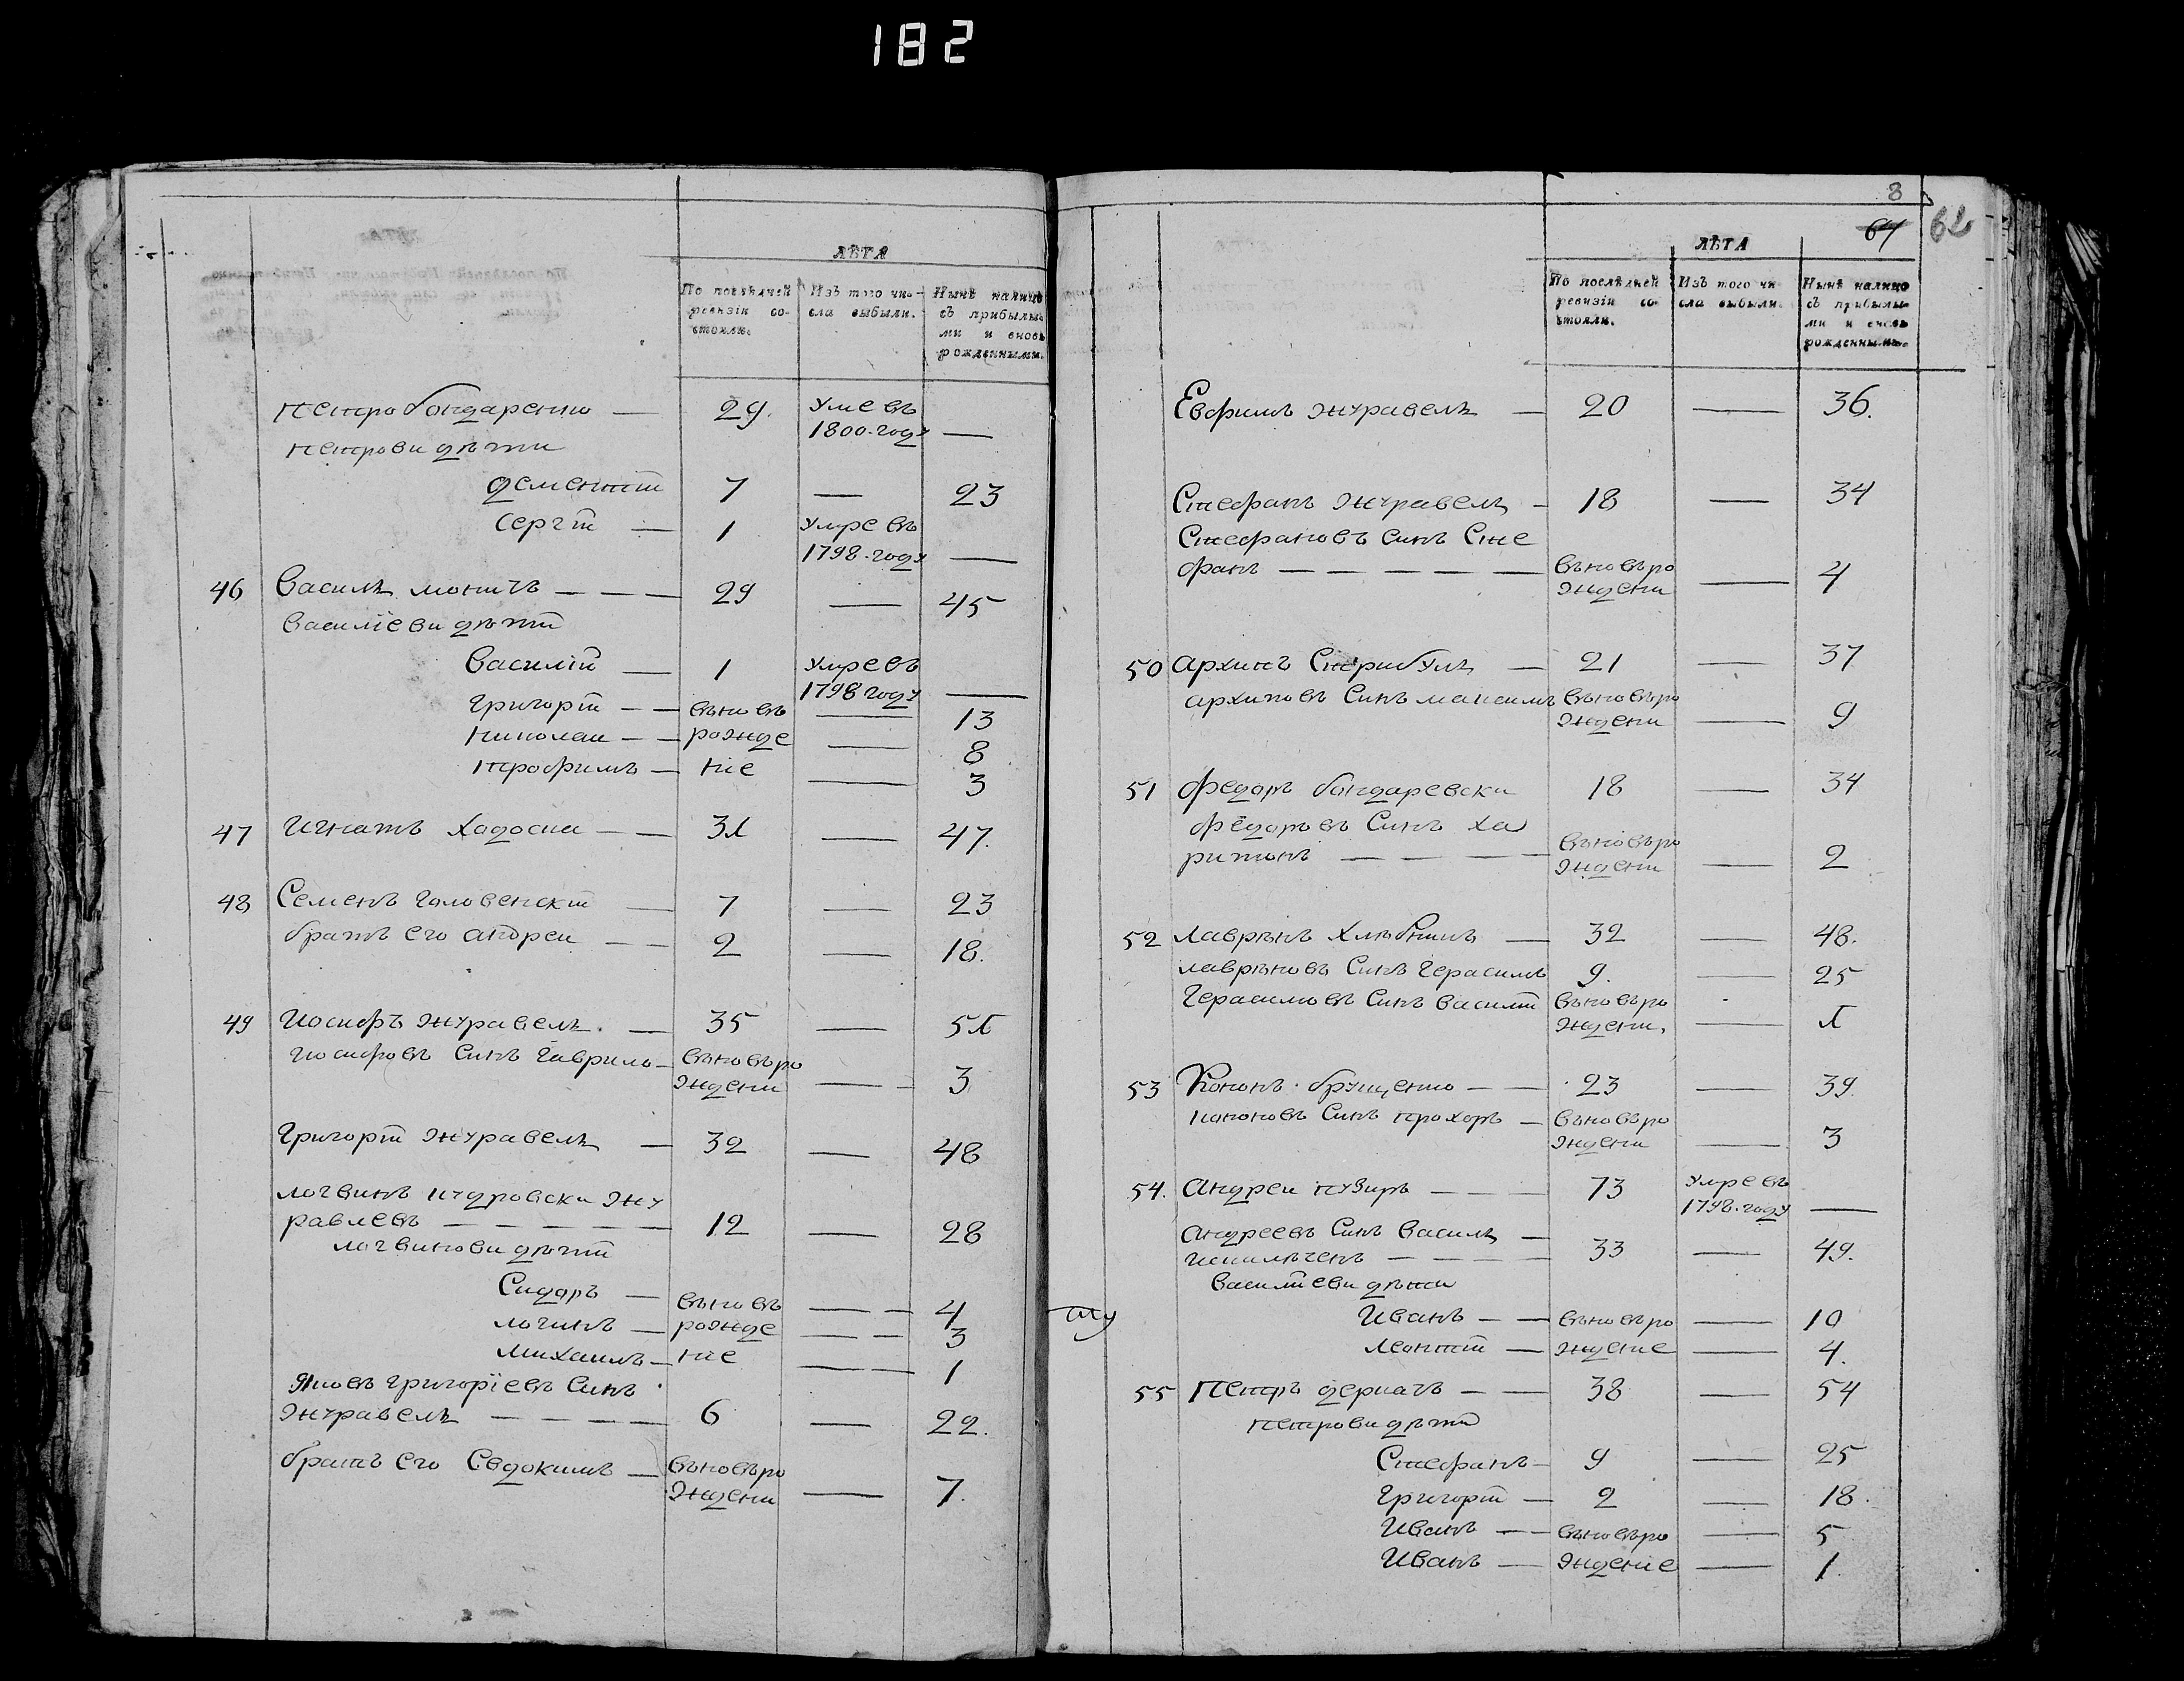 182
ЛѢТА
По послѣдней ревизіи со- стояли.
Изъ того чи- сла выбыли.
Нынѣ налицо съ прибылы- ми и вновь рожденными.
Петро бондаренко — 29. Умре въ
1800. году —
Петрови дѣти
Дементій 7 — 23
Сергій — 1 Умре въ
1798. году —
46 Василь моничъ — — — 29 — 45
Василіеви дѣтій
Василій — 1 Умре въ
1798 году —
Григорій — — вьновъ — 13
Николаи — — рожде — 8
Трофимъ — ніе — 3
47 Игнатъ — — 31 — 47
48 Семенъ головенскій — 7 — 23
братъ его андреи — — 2 — 18.
49 Иосифъ журавель. — 35 — 51
иосифовъ Синъ Гаврило — вьновъро
ждени — — 3
Григорій журавель — 32 — 48
логвинъ кудровски жу
равлевъ — — — — — 12 — 28
логвинови дѣтій
Сидоръ — вьновъ — — 4
логинъ — рожде — — 3
Михаилъ — ніе — — 1
Яковъ григоріевъ Синъ
журавель — — — — 6 — 22.
братъ его Євдокимъ — вьновъро
ждени — 7.
8
64 62
ЛѢТА
По послѣдней ревизіи со- стояли.
Изъ того чи- сла выбыли.
Нынѣ налицо съ прибылы- ми и вновь рожденными.
Евфимъ журавель — 20 — 36.
Стефанъ журавель — 18 — 34
Стефановъ Синъ Сте
фанъ — — — — — вьновъро
ждени — 4
50 архипъ Стрибуль — 21 — 37
архиповъ Синъ максимъ вьновъро
ждени — 9
51 федоръ бондаревски 18 — 34
федоровъ Синъ Ха
ритонъ — — — — вьновъро
ждени — 2
52 лаврѣнъ — 32 — 48.
лаврѣновъ Синъ Герасимъ 9. — 25
Герасимовъ Синъ василій вьновъро
ждени, — 1
53 Кононъ брущенко — — 23 — 39.
кононовъ Синъ прохоръ — вьновъро
ждени — 3
54. андреи пузиръ — — — 73 Умре въ
1798. году —
андреевъ Синъ Василь —
— — — — 33 — 49.
Василіеви дѣти
Иванъ — — вьновъро — 10
леонтій — ждение — 4.
55 Петръ деркачъ — — 38 — 54
Петрови дѣтій
Стефанъ — 9 — 25
Григорій — 2 — 18.
Иванъ — — вьновъро — 5
Иванъ — ждение — 1.